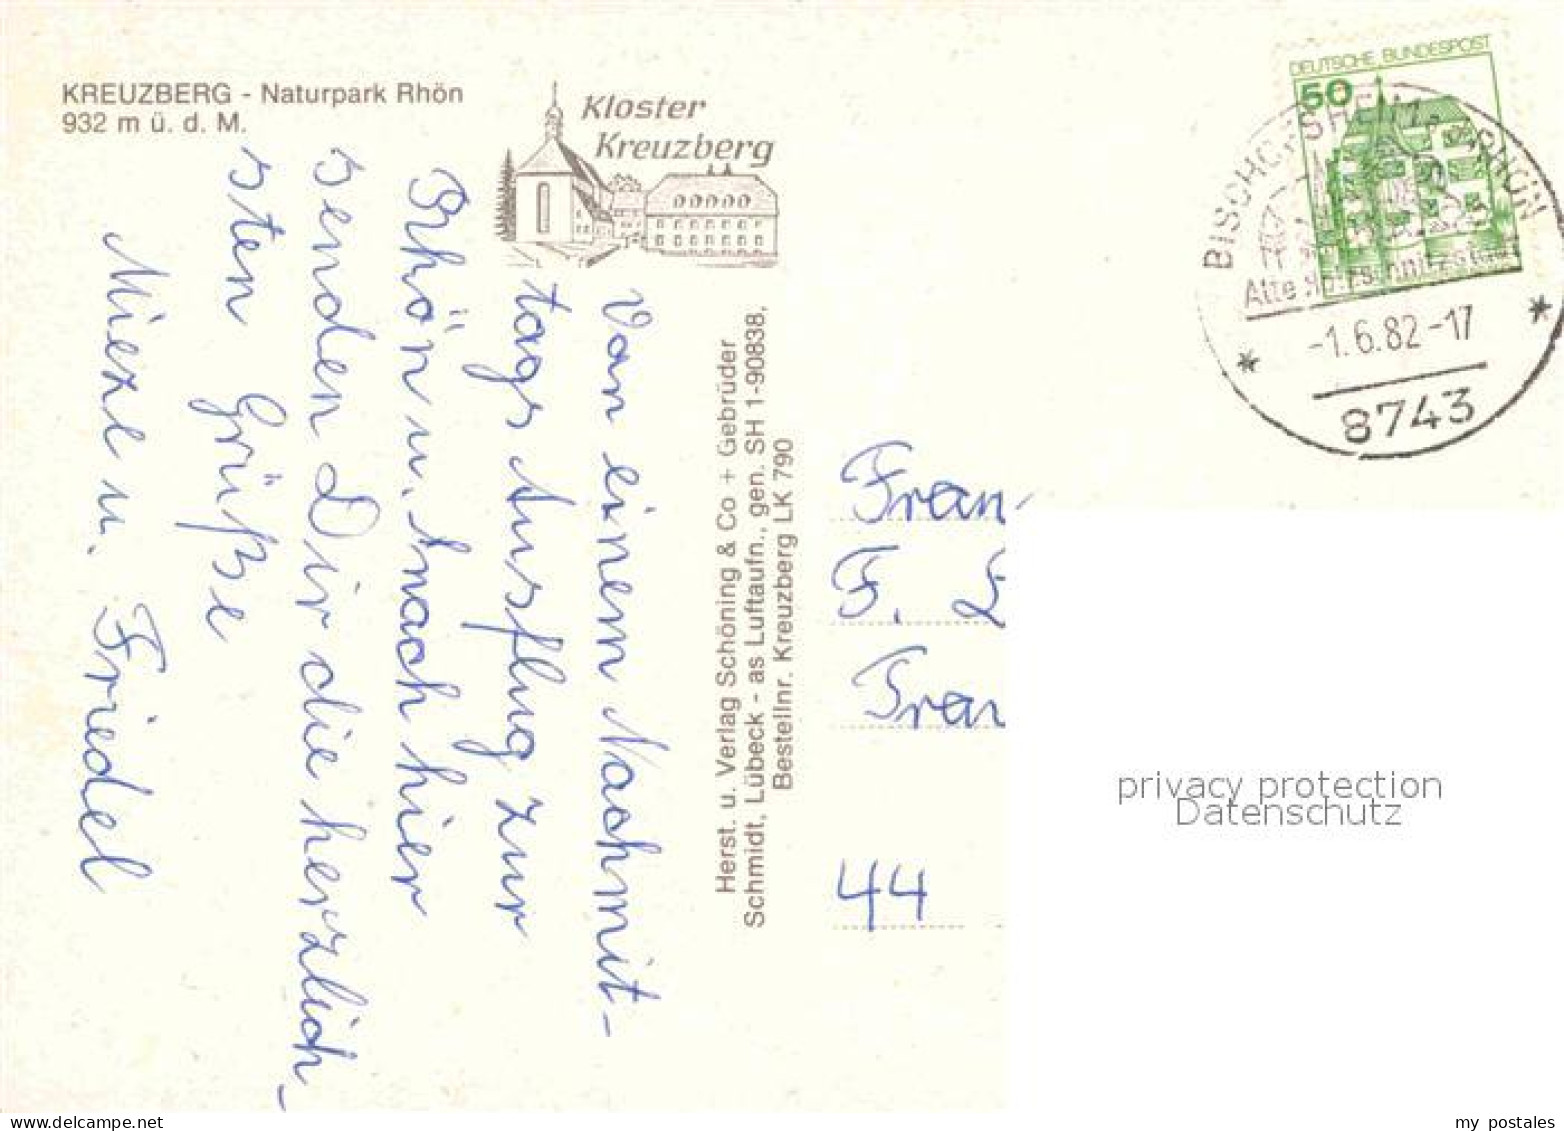 KREUZBERG - Naturpark Rhön
932 m ü. d. M.
Kloster
Kreuzberg
Von einem Nachmit-
tags Ausflug zur
Rhön u. nach hier
senden Dir die herzlich-
sten Grüße
Mieze u. Friedel
Herst. u. Verlag Schöning & Co + Gebrüder
Schmidt, Lübeck - as Luftaufn., gen. SH 1-90838,
Bestellnr. Kreuzberg LK 790
DEUTSCHE BUNDESPOST
50
BISCHOFSHEIM RHÖN
Alte Holzschnitzstadt
-1.6.82-17
8743
Frau
F.
Fran
44
privacy protection
Datenschutz
delcampe.net
my_postales